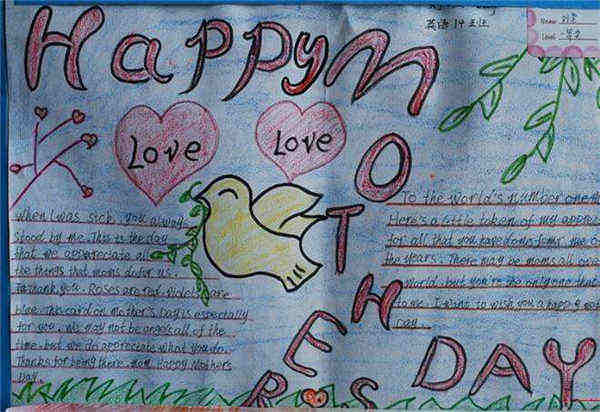 HAPPY MOTHERS DAY
英语14班
Name
Level
Love
Love
When I was sick, you always
stood by me. This is the day
that we appreciate all
the things that moms do for us.
To thank you. Roses are red. Violets are
blue. This card on mother's Day is especially
for you. We may not be angels all of the
time. but we do appreciate what you do.
Thanks for being there, mom. Happy Mothers
Day.
To the world's number one
Here's a little token of my apprec
for all that you have done
the years. There may be moms all over
world. but you're the only one that
to me. I want to wish you a happy
day.